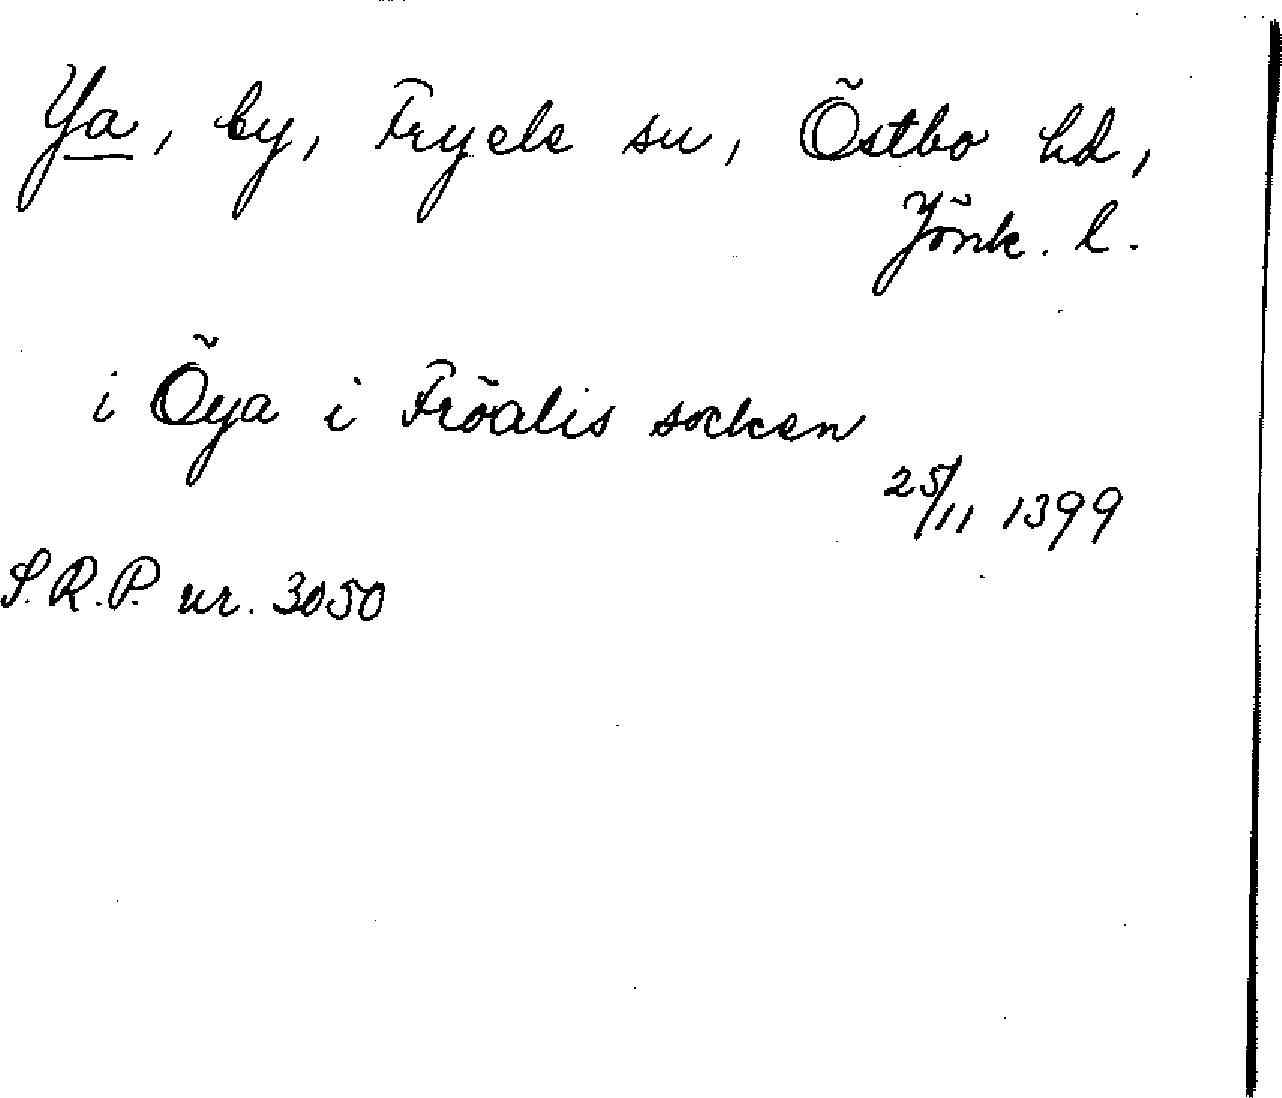 Ya, by, Fryele sn, Östbo hd,
Jönk. l.
i Öya i Fröalis socken
25/11 1399
S.R.P. nr. 3050